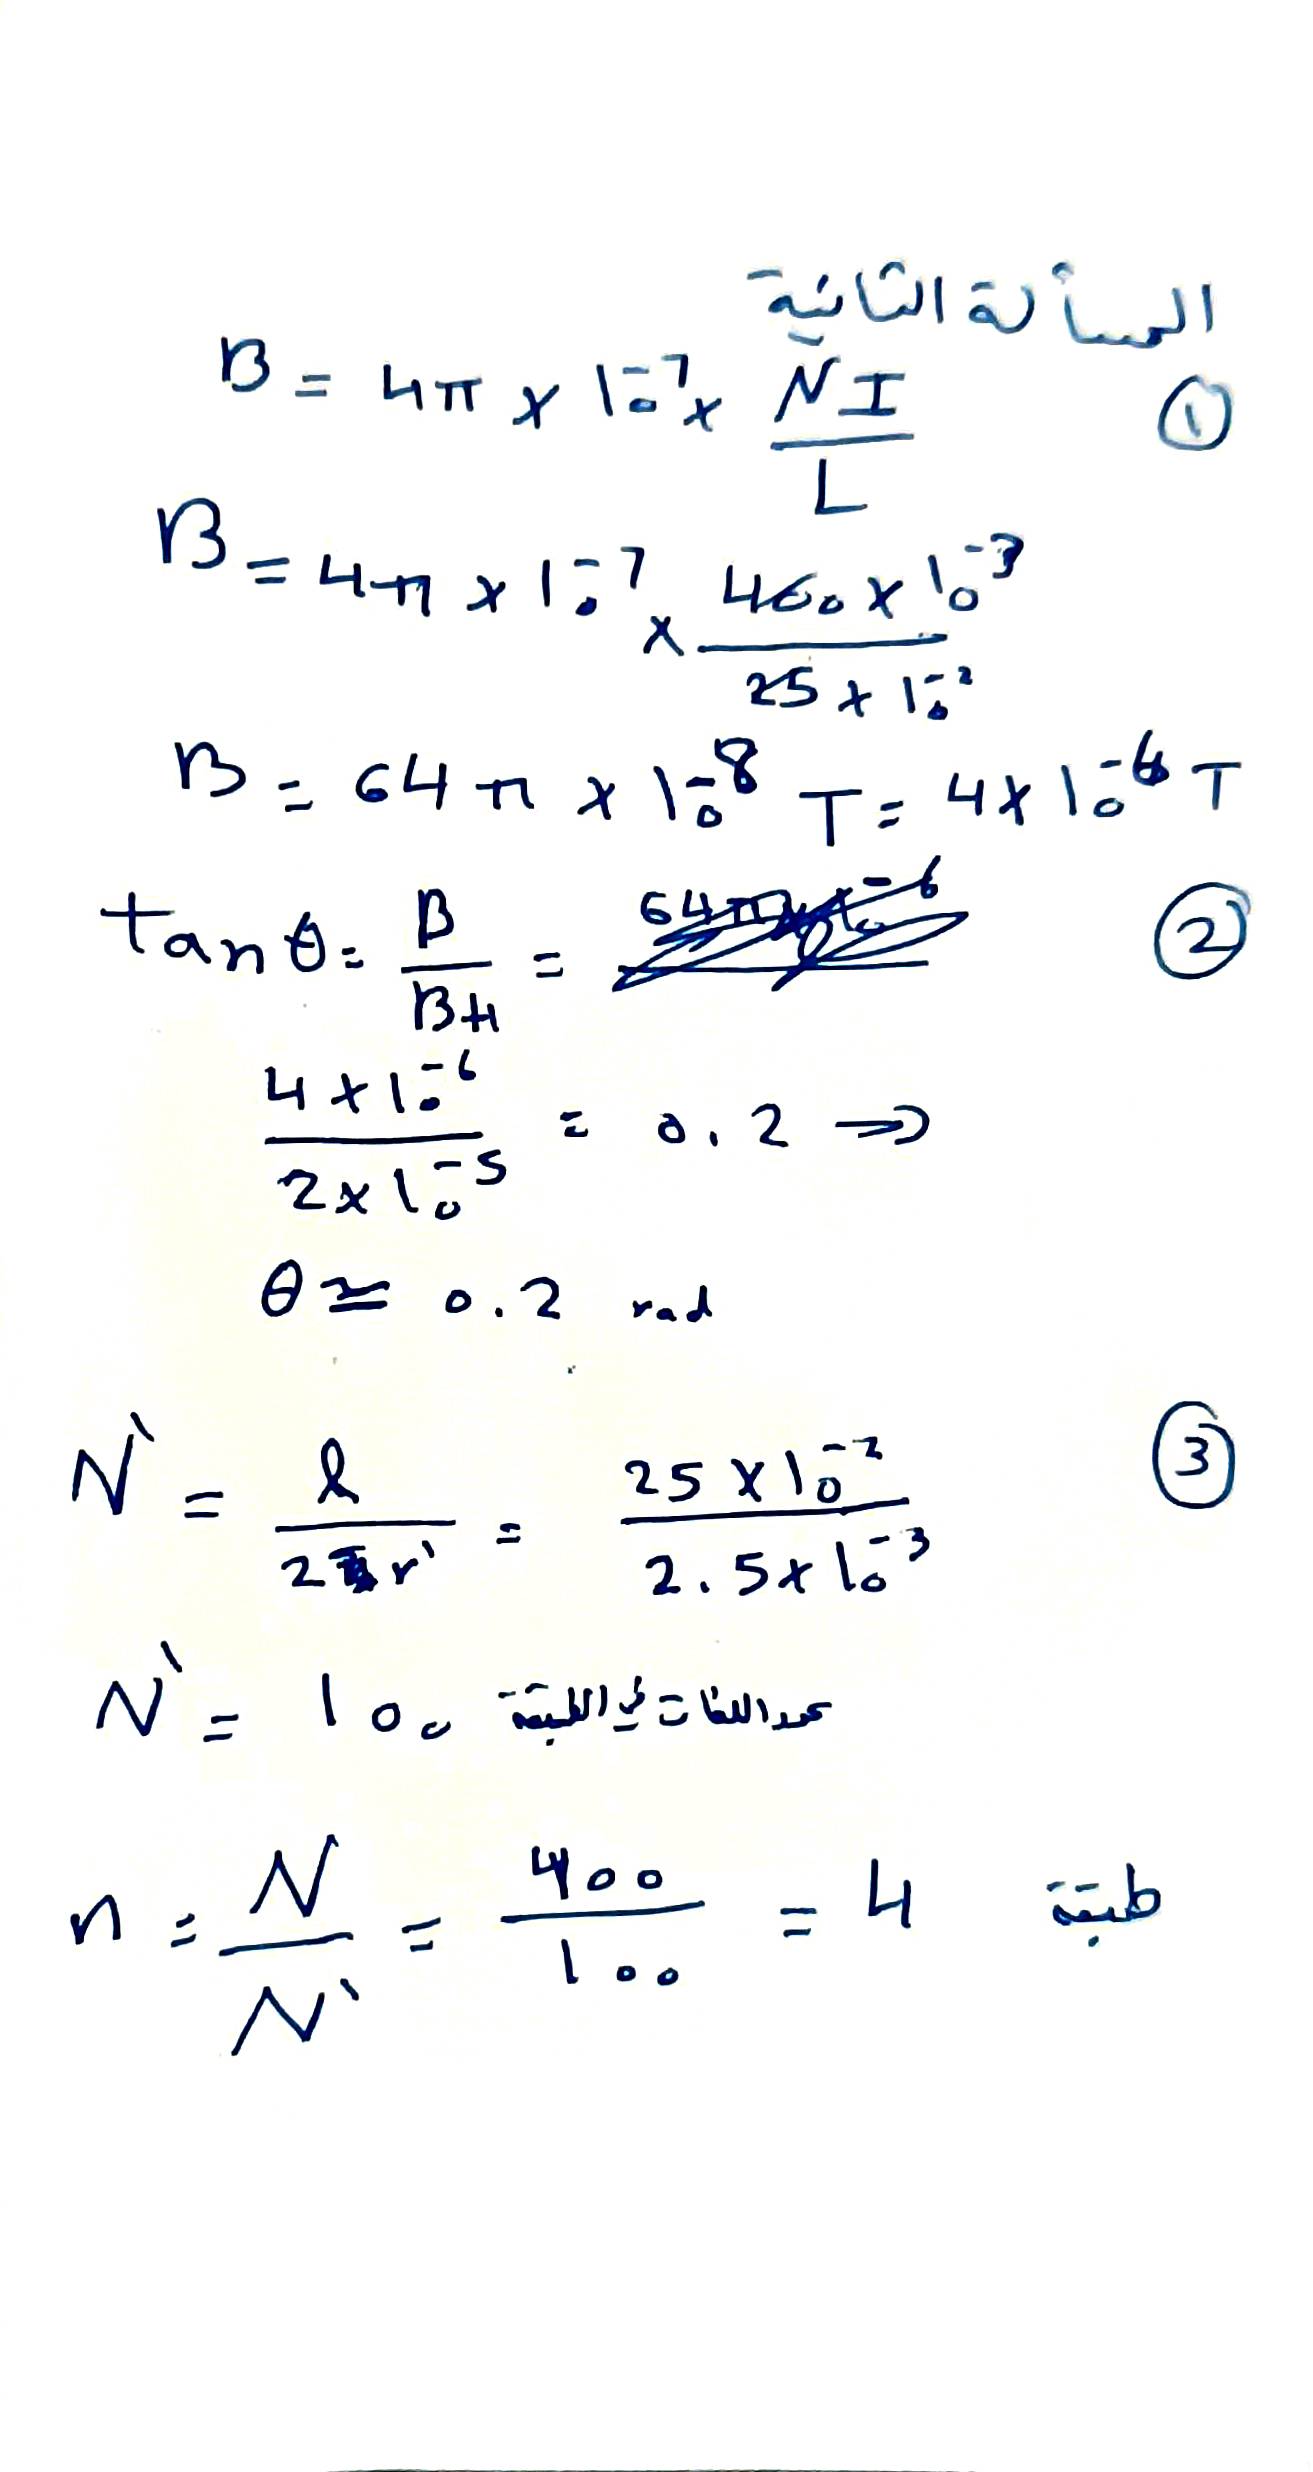 المسألة الثانية
① B = 4π × 10⁻⁷ × NI / L
B = 4π × 10⁻⁷ × 400 × 10⁻³ / 25 × 10⁻²
B = 64π × 10⁻⁸ T = 4 × 10⁻⁶ T
② tanθ = B / BH =
4 × 10⁻⁶ / 2 × 10⁻⁵ = 0.2 ⇒
θ ≃ 0.2 rad
③ N` = l / 2r` = 25 × 10⁻² / 2.5 × 10⁻³
N` = 100 عدد اللفات في الطبقة
n = N / N` = 400 / 100 = 4 طبقة